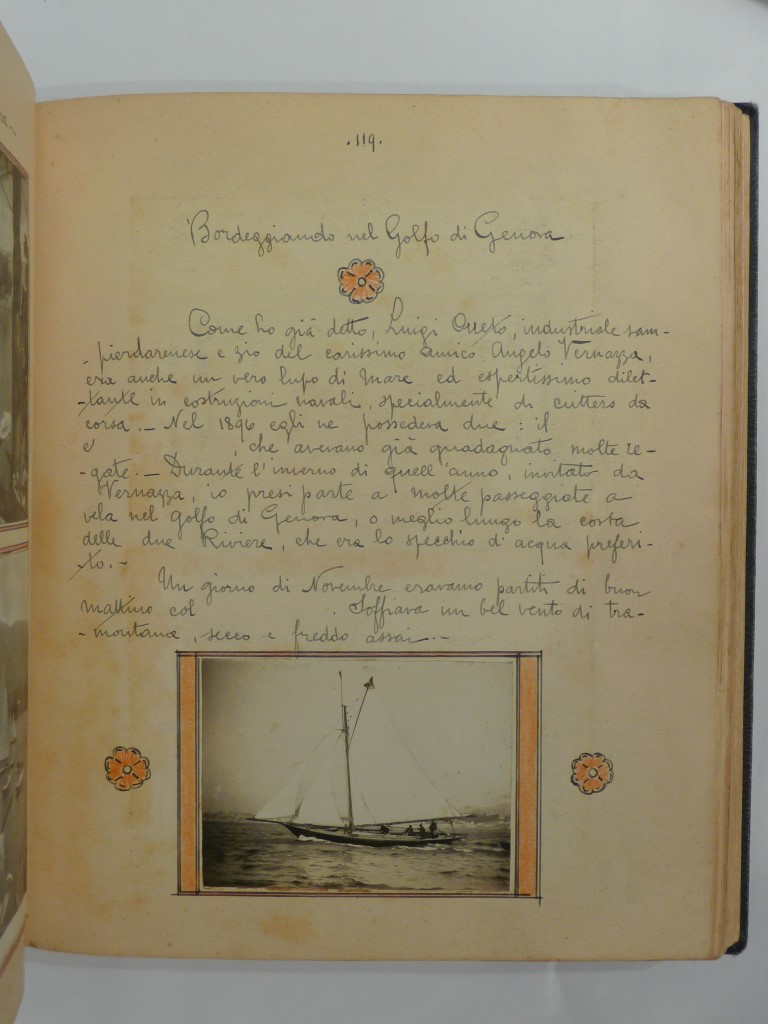 .119.
Bordeggiando nel Golfo di Genova
Come ho già detto, Luigi Oneto, industriale sam-
-pierdarenese e zio del carissimo amico Angelo Vernazza,
era anche un vero lupo di Mare ed espertissimo dilet-
-tante in costruzioni navali, specialmente di cutters da
corsa. - Nel 1896 egli ne possedeva due : il
e , che avevano già guadagnato molte re-
-gate. - Durante l'inverno di quell'anno, invitato da
Vernazza, io presi parte a molte passeggiate a
vela nel Golfo di Genova, o meglio lungo la costa
delle due Riviere, che era lo specchio d'acqua preferi-
-to. -
Un giorno di Novembre eravamo partiti di buon
mattino col . Soffiava un bel vento di tra-
-montana, secco e freddo assai. -